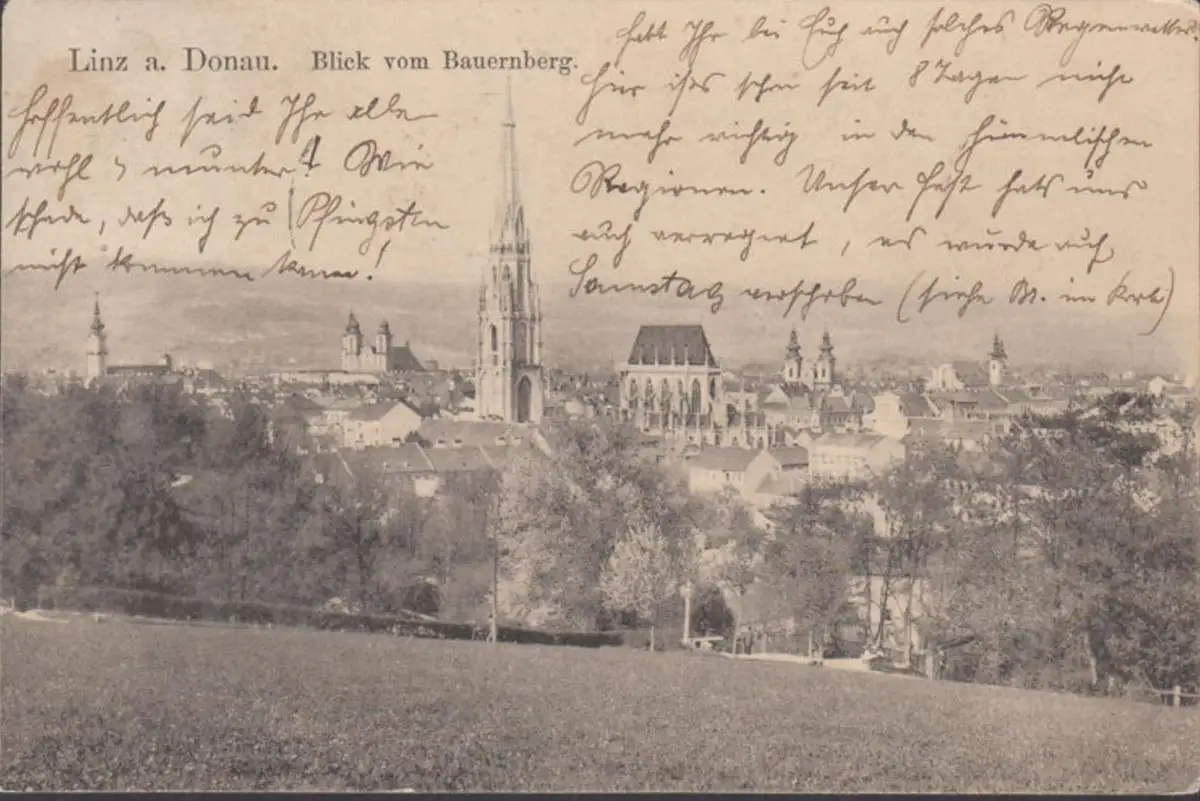 Linz a. Donau. Blick vom Bauernberg.
Hoffentlich seid Ihr alle
wohl & munter! Wie
schade, daß ich zu Pfingsten
nicht kommen kann!
habt Ihr bei Euch auch solches Regenwetter.
Hier ist's schon seit 8 Tagen nicht
mehr richtig in den himmlischen
Regionen. Unser Fest hats uns
auch verregnet, es wurde auf
Samstag verschoben (siehe M. im Krk)